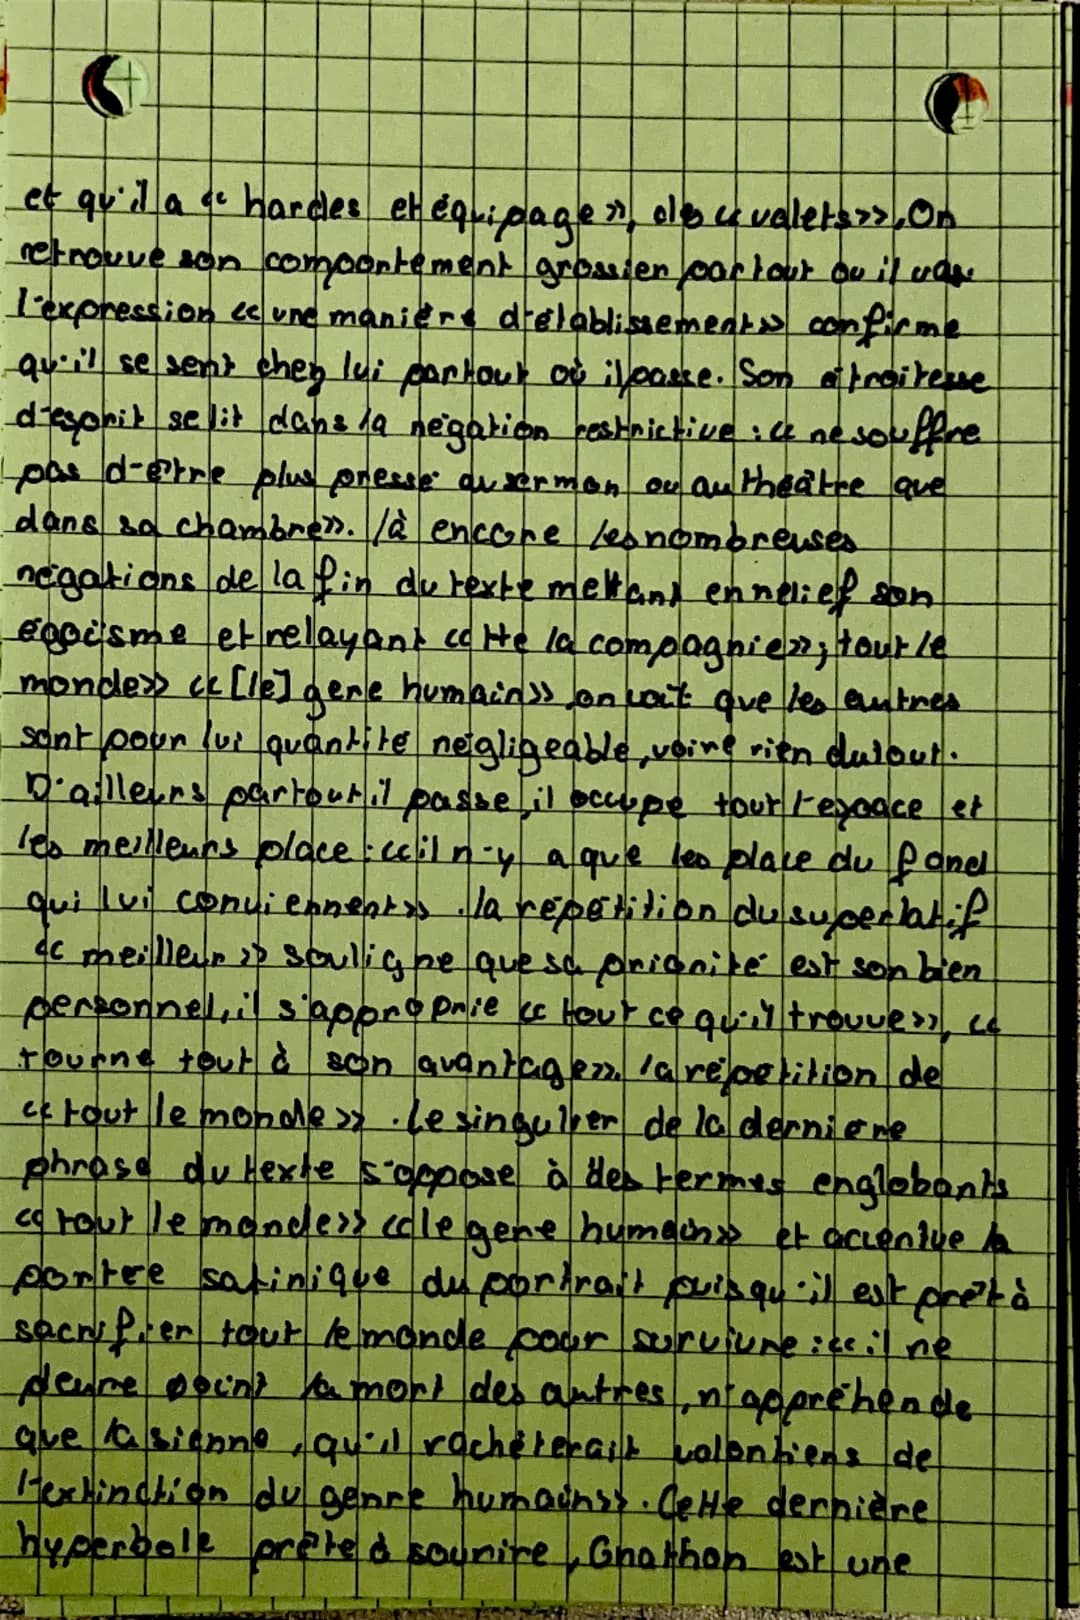 et qu'il a « hardes et équipage », des « valets ». On
retrouve son compoortement grossier partout ou il vas
l'expression « une manière d'établissement » confirme
qu'il se sent chez lui partout où il passe. Son étroitesse
d'esprit se lit dans la négation restrictive : « ne souffre
pas d'être plus pressé au sermon ou au théâtre que
dans sa chambre ». là encore les nombreuses
négations de la fin du texte mettant en relief son
égoïsme et relayant « tte la compagnie » ; tout le
monde » « [le] gene humain » on voit que les autres
sont pour lui quantité négligeable, voire rien du tout.
D'ailleurs partout il passe, il occupe tout l'espace et
les meilleurs place : « il n'y a que les place du fond
qui lui conviennent ». la répétition du superlatif
« meilleur » souligne que sa priorité est son bien
personnel, il s'approprie « tout ce qu'il trouve », «
tourne tout à son avantage ». la répétition de
« tout le monde ». Le singulier de la derniere
phrase du texte s'oppose à des termes englobants
« tout le monde » « le gene humain » et accentue la
portée satirique du portrait puisqu'il est prêt à
sacrifier tout le monde pour survivre : « il ne
pleure point la mort des autres, n'appréhende
que la sienne, qu'il rachèterait volontiers de
l'extinction du genre humains ». Cette dernière
hyperbole prête à sourire, Gnathon est une